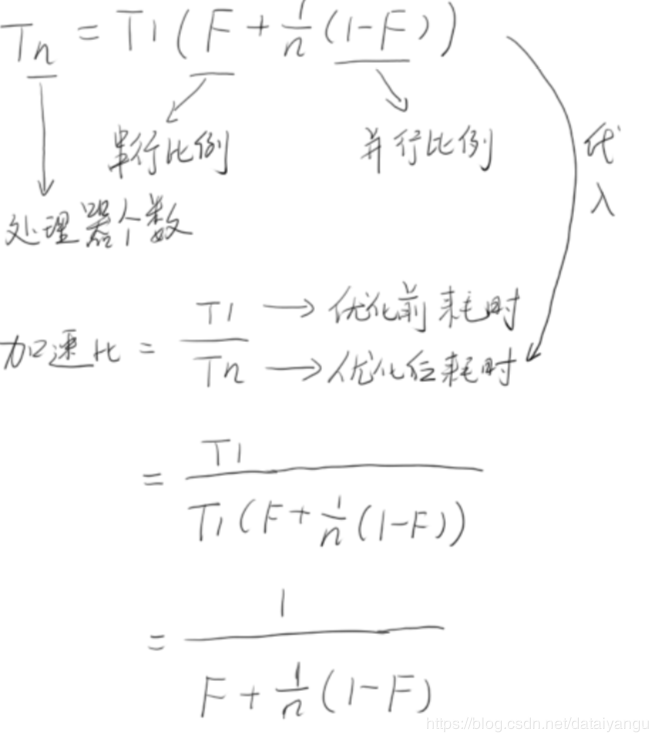 Tn = T1(F + 1/n(1-F))
串行比例 并行比例 代入
处理器个数
加速比 = T1/Tn → 优化前耗时 → 优化后耗时
= T1/(T1(F + 1/n(1-F)))
= 1/(F + 1/n(1-F))
https://blog.csdn.net/dataiyangu